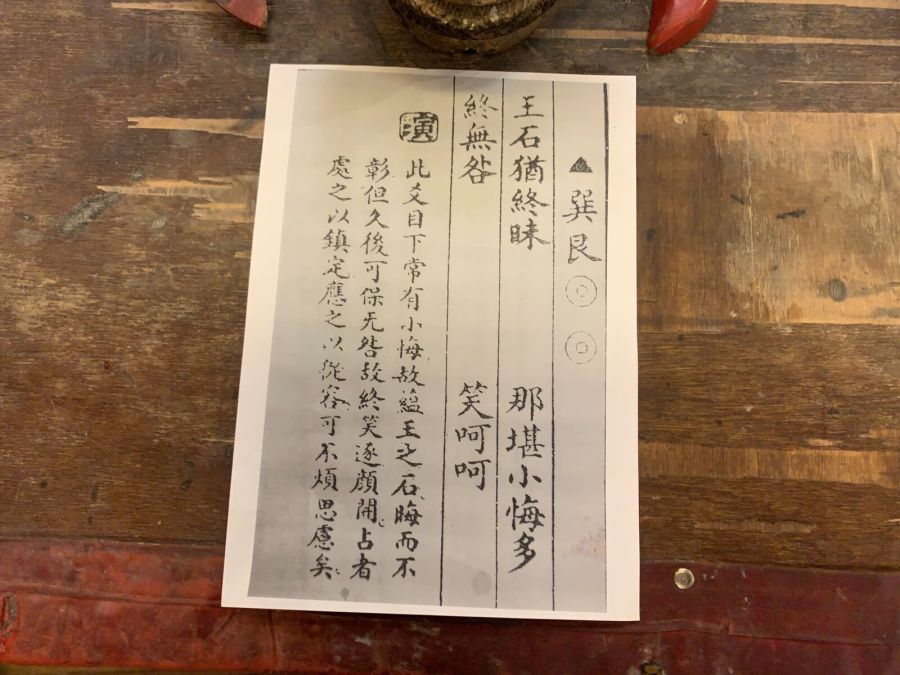 ▲ 巽艮 ◎ ◎
王石猶終昧 那堪小悔多
終無咎 笑呵呵
演
此爻目下常有小悔故蘊王之石晦而不
彰但久後可保无咎故終笑逐顔開占者
處之以鎮定應之以從容可不煩思慮矣